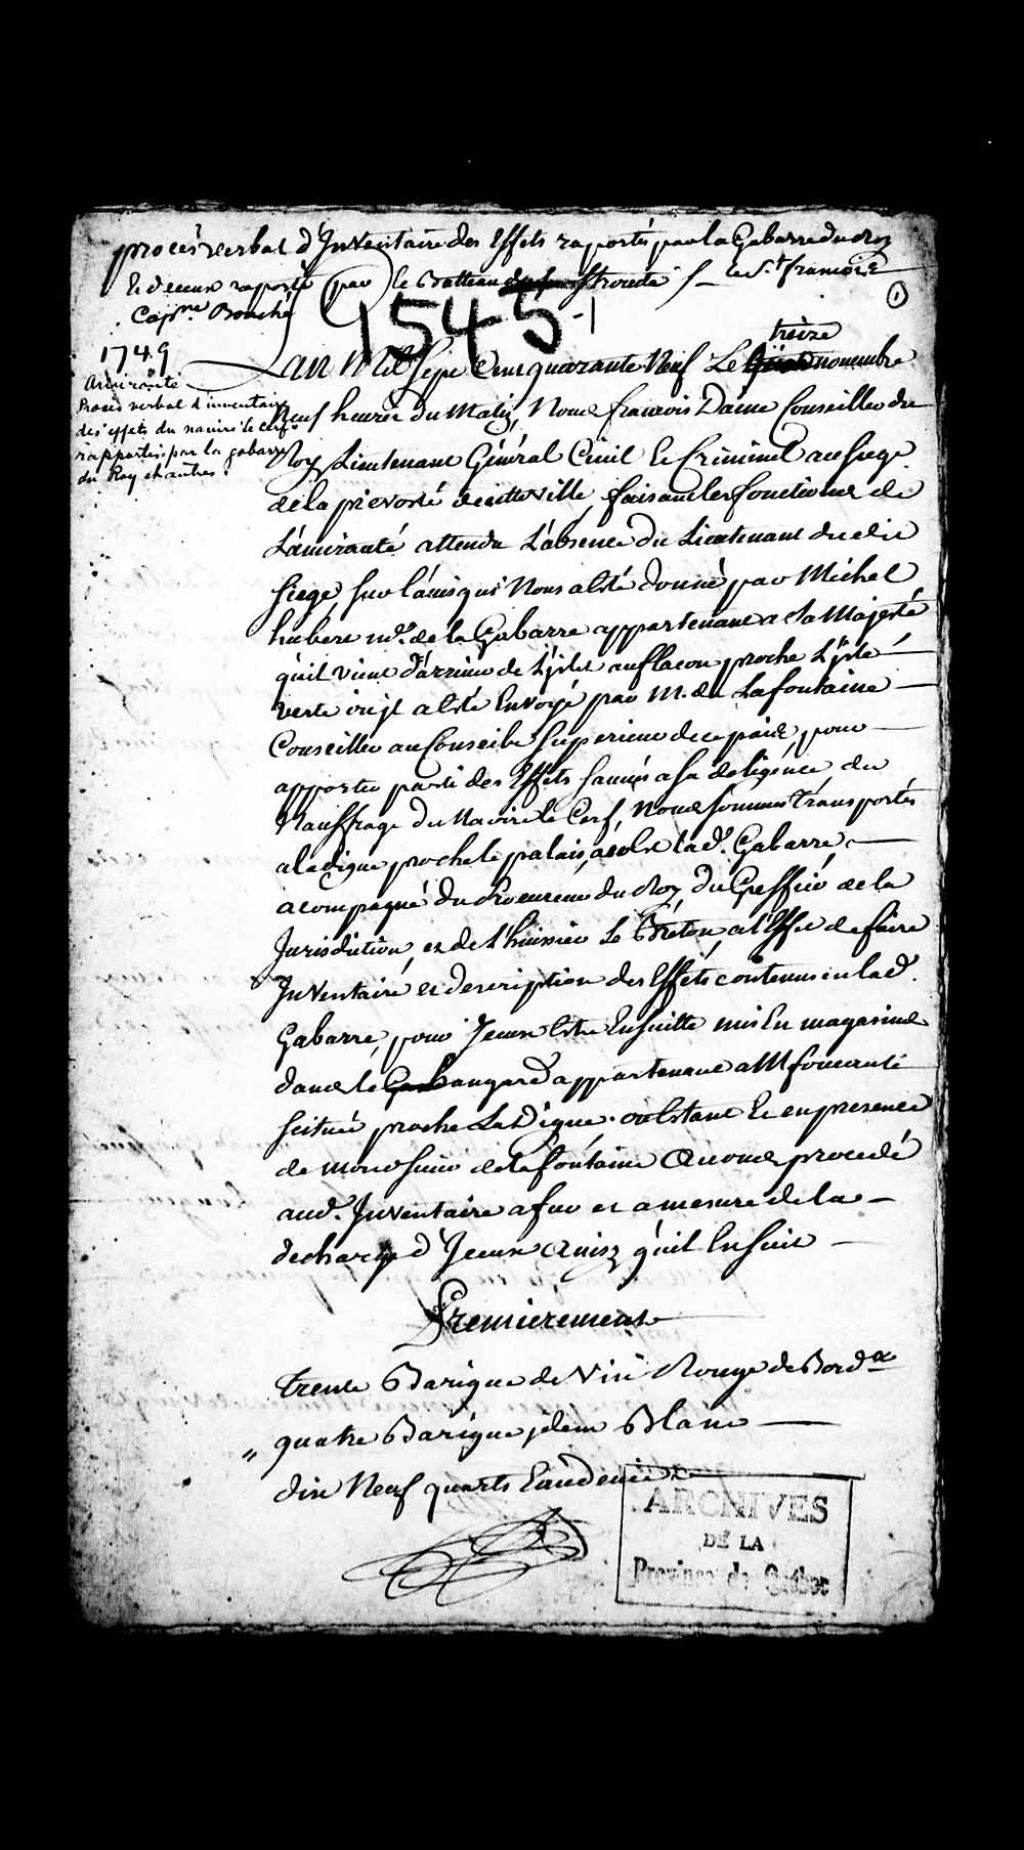 procés verbal d'Inventaire des Effets raportés par la Gabarre du Roy
Et deceux raporté par le Batteau le St. francois
Capne. Bouché
①
1545-1
1749
Amirauté
Procès verbal d'inventaire
des effets du navire le cerf
rapportés par la gabarre
du Roy et autres.
treize
Lan Mil Sept Cent quarante Neuf Le novembre
Neuf heures du Matin, Nous francois Daine Conseiller du
Roy Lieutenant Général Civil Et Criminel au Siege
de la prevosté decette ville, faisant les fonctions de
Lámirauté attendu Lábsence du Lieutenant du dit
Siege, sur lávis qui Nous a Esté donné par Michel
hubere me. de la Gabarre appartenant a Sa Majesté
quil vient d'árriver de L'jslet au flacon proche L'jsle
verte où jl a Esté Envoyé par M. de Lafontaine
Conseiller au Conseil Superieur de ce païs, pour
apporter parti des Effets sauvés a sa deligénce, du
Nauffrage du Navire le Cerf, Nous sommes transportés
a la digue proche le palais, a ladte. Gabarre
acompagné du Procureur du Roy, du Greffier de la
Jurisdiction, et de l'huissier Le Bréton, a l'Effet de faire
Inventaire et description des Effets contenus en lad.
Gabarre, pour Iceux Estre Ensuitte mis En magasins
dans le hangard appartenant a M foucault
scitué proche La Digue. où Estant Et en presence
de mond sieur de la fontaine Avons procedé
aud. Inventaire a fur et a mesure de la
decharge d'Iceux Ainsy qu'il Ensuit
Premierement
trente Barique de Vin Rouge de Bordx
" quatre Barique jdem Blanc
dix Neuf quarts Eaudevie
ARCHIVES
DE LA
Province de Québec